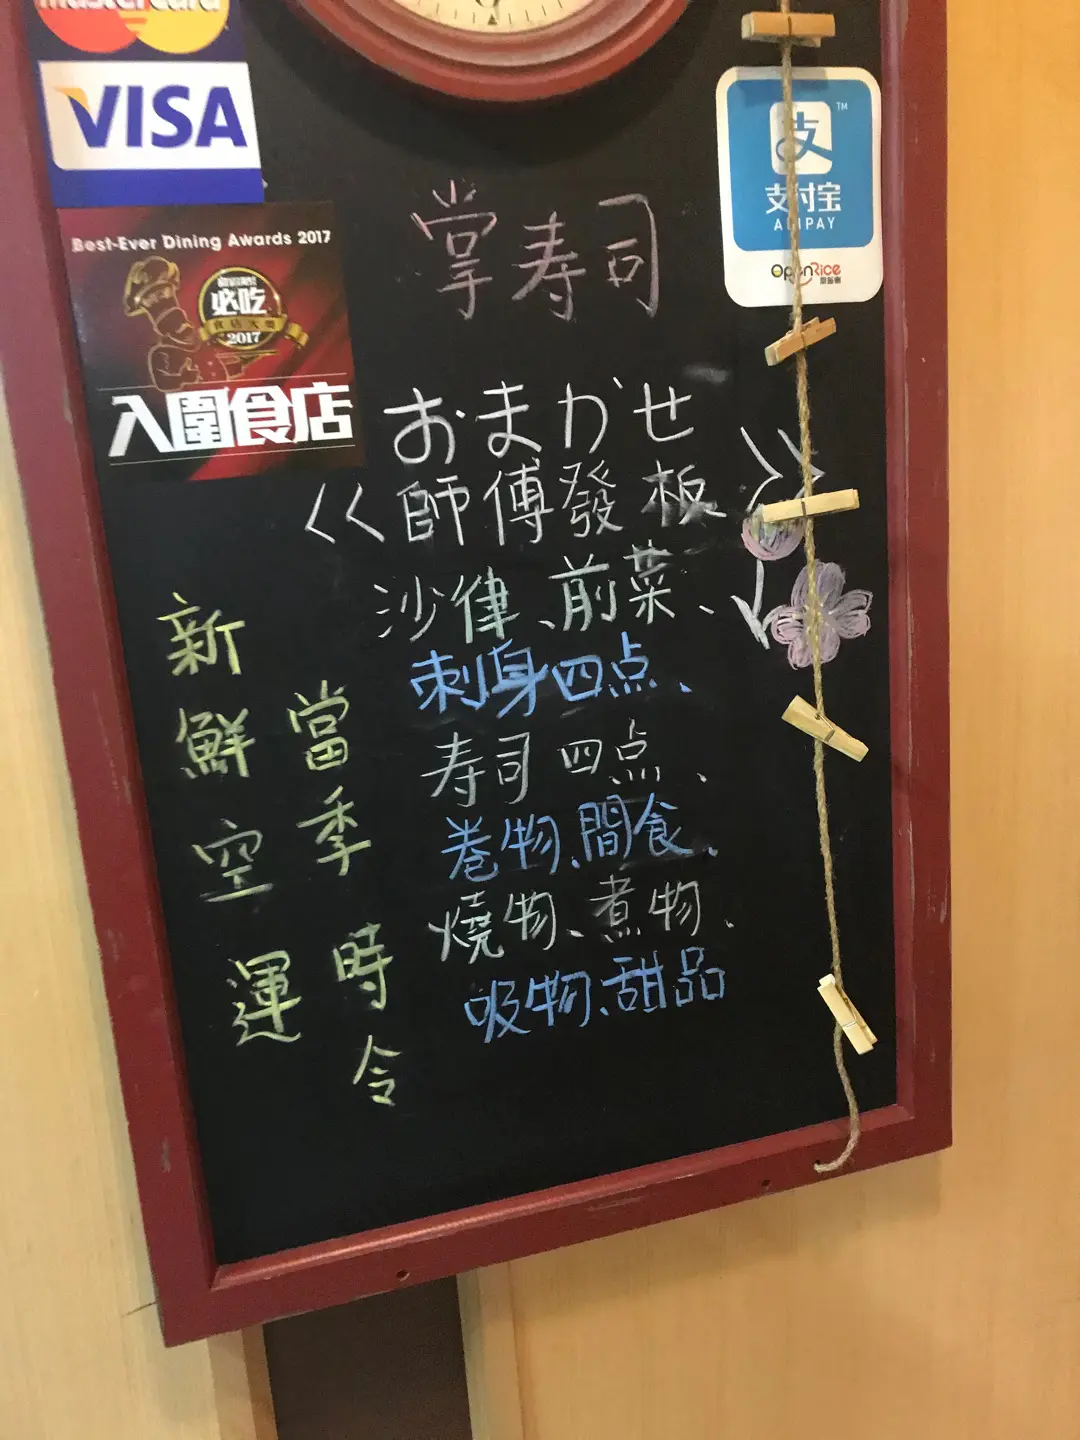 mastercard
VISA
Best-Ever Dining Awards 2017
必吃
食店大獎
2017
入圍食店
支
TM
支付宝
ALIPAY
OpenRice
掌寿司
おまかせ
<<師傅發板>>
沙律、前菜、
刺身四点、
寿司四点、
卷物、間食、
燒物、煮物、
吸物、甜品
新鮮空運
當季時令